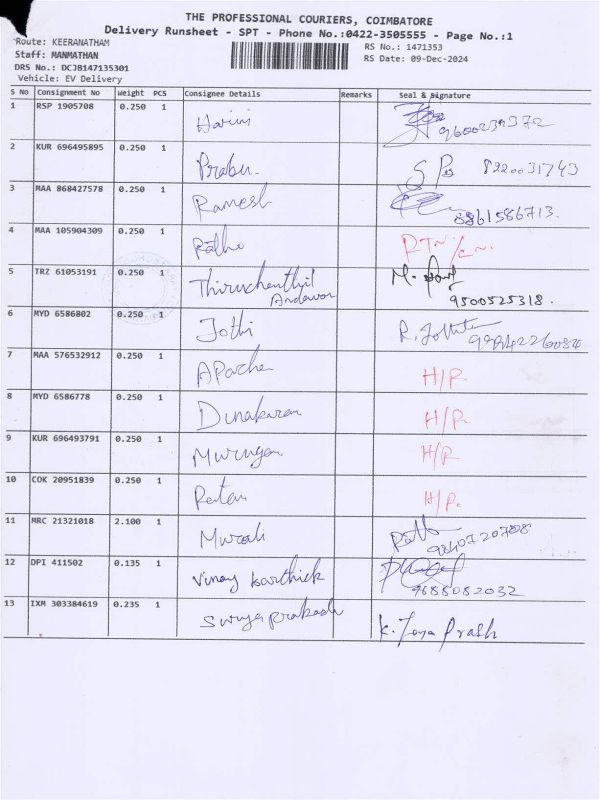 THE PROFESSIONAL COURIERS, COIMBATORE
Delivery Runsheet - SPT - Phone No.:0422-3505555 - Page No.:1
Route: KEERANATHAM
RS No.: 1471353
Staff: MANMATHAN
RS Date: 09-Dec-2024
DRS No.: DCJB147135301
Vehicle: EV Delivery
S No Consignment No Weight PCS Consignee Details Remarks Seal & Signature
1 RSP 1905708 0.250 1 Harini
2 KUR 696495895 0.250 1 Prabu. 8220031743
3 MAA 868427578 0.250 1 Ramesh 8861586713.
4 MAA 105904309 0.250 1
5 TRZ 61053191 0.250 1 Thiruchenthil
Andavar 9500525318.
6 MYD 6586802 0.250 1 Jothi
7 MAA 576532912 0.250 1 Apache H/R
8 MYD 6586778 0.250 1 Dinakaran H/R
9 KUR 696493791 0.250 1 Murugan H/R
10 COK 20951839 0.250 1 Ratan H/R.
11 MRC 21321018 2.100 1 Murali
12 DPI 411502 0.135 1 Vinay karthick
9688082032
13 IXM 303384619 0.235 1 Suryaprakash
K. Jaya Prash